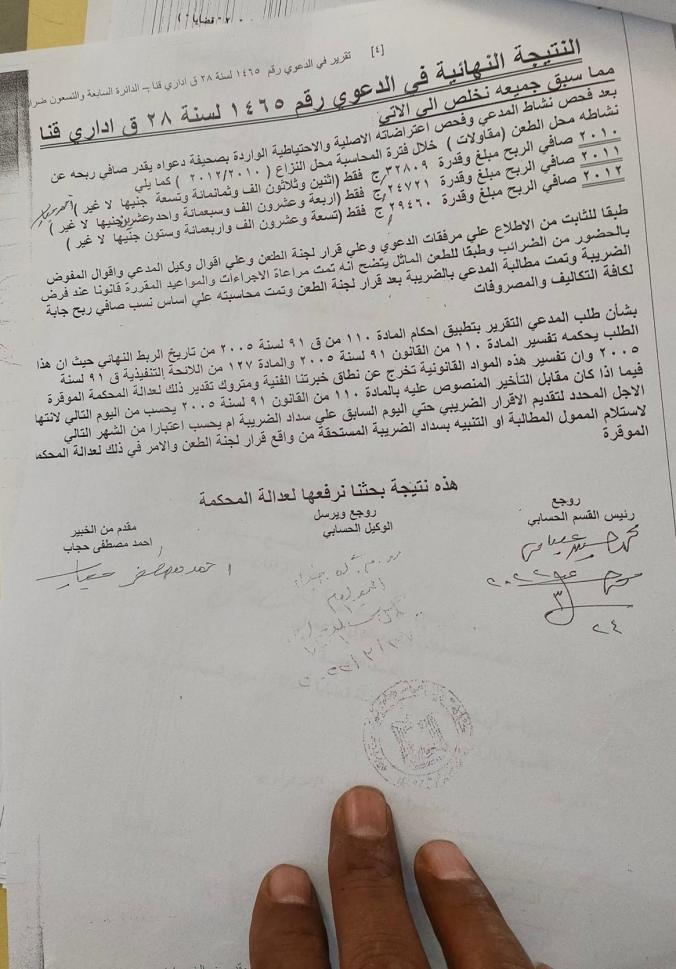 ٢٠" قضايا")
[٤] تقرير في الدعوي رقم ١٤٦٥ لسنة ٢٨ ق اداري قنا – الدائرة السابعة والتسعون ضرا
النتيجة النهائية في الدعوي رقم ١٤٦٥ لسنة ٢٨ ق اداري قنا
مما سبق جميعه نخلص الى الاتي
بعد فحص نشاط المدعي وفحص اعتراضاته الاصلية والاحتياطية الواردة بصحيفة دعواه يقدر صافي ربحه عن
نشاطه محل الطعن (مقاولات ) خلال فترة المحاسبة محل النزاع ( ٢٠١٢/٢٠١٠ ) كما يلي
٢٠١٠ صافي الربح مبلغ وقدرة ٣٢٨٠٩ ج فقط (اثنين وثلاثون الف وثمانمائة وتسعة جنيها لا غير )
٢٠١١ صافي الربح مبلغ وقدرة ٢٤٧٢١ ج فقط (اربعة وعشرون الف وسبعمائة واحد وعشرين جنيها لا غير )
٢٠١٢ صافي الربح مبلغ وقدرة ٢٩٤٦٠ ج فقط (تسعة وعشرون الف واربعمائة وستون جنيها لا غير )
طبقا للثابت من الاطلاع علي مرفقات الدعوي وعلي قرار لجنة الطعن وعلي اقوال وكيل المدعي واقوال المفوض
بالحضور من الضرائب وطبقا للطعن الماثل يتضح انه تمت مراعاة الاجراءات والمواعيد المقررة قانونا عند فرض
الضريبة وتمت مطالبة المدعي بالضريبة بعد قرار لجنة الطعن وتمت محاسبته علي اساس نسب صافي ربح جابة
لكافة التكاليف والمصروفات
بشأن طلب المدعي التقرير بتطبيق احكام المادة ١١٠ من ق ٩١ لسنة ٢٠٠٥ من تاريخ الربط النهائي حيث ان هذا
الطلب يحكمه تفسير المادة ١١٠ من القانون ٩١ لسنة ٢٠٠٥ والمادة ١٢٧ من اللائحة التنفيذية ق ٩١ لسنة
٢٠٠٥ وان تفسير هذه المواد القانونية تخرج عن نطاق خبرتنا الفنية ومتروك تقدير ذلك لعدالة المحكمة الموقرة
فيما اذا كان مقابل التأخير المنصوص عليه بالمادة ١١٠ من القانون ٩١ لسنة ٢٠٠٥ يحسب من اليوم التالي لانتها
الاجل المحدد لتقديم الاقرار الضريبي حتي اليوم السابق علي سداد الضريبة ام يحسب اعتبارا من الشهر التالي
لاستلام الممول المطالبة او التنبيه بسداد الضريبة المستحقة من واقع قرار لجنة الطعن والامر في ذلك لعدالة المحكم
الموقرة
هذه نتيجة بحثنا نرفعها لعدالة المحكمة
روجع
رئيس القسم الحسابي
روجع ويرسل
الوكيل الحسابي
مقدم من الخبير
احمد مصطفى حجاب
احمد مصطفى حجاب
٢٤